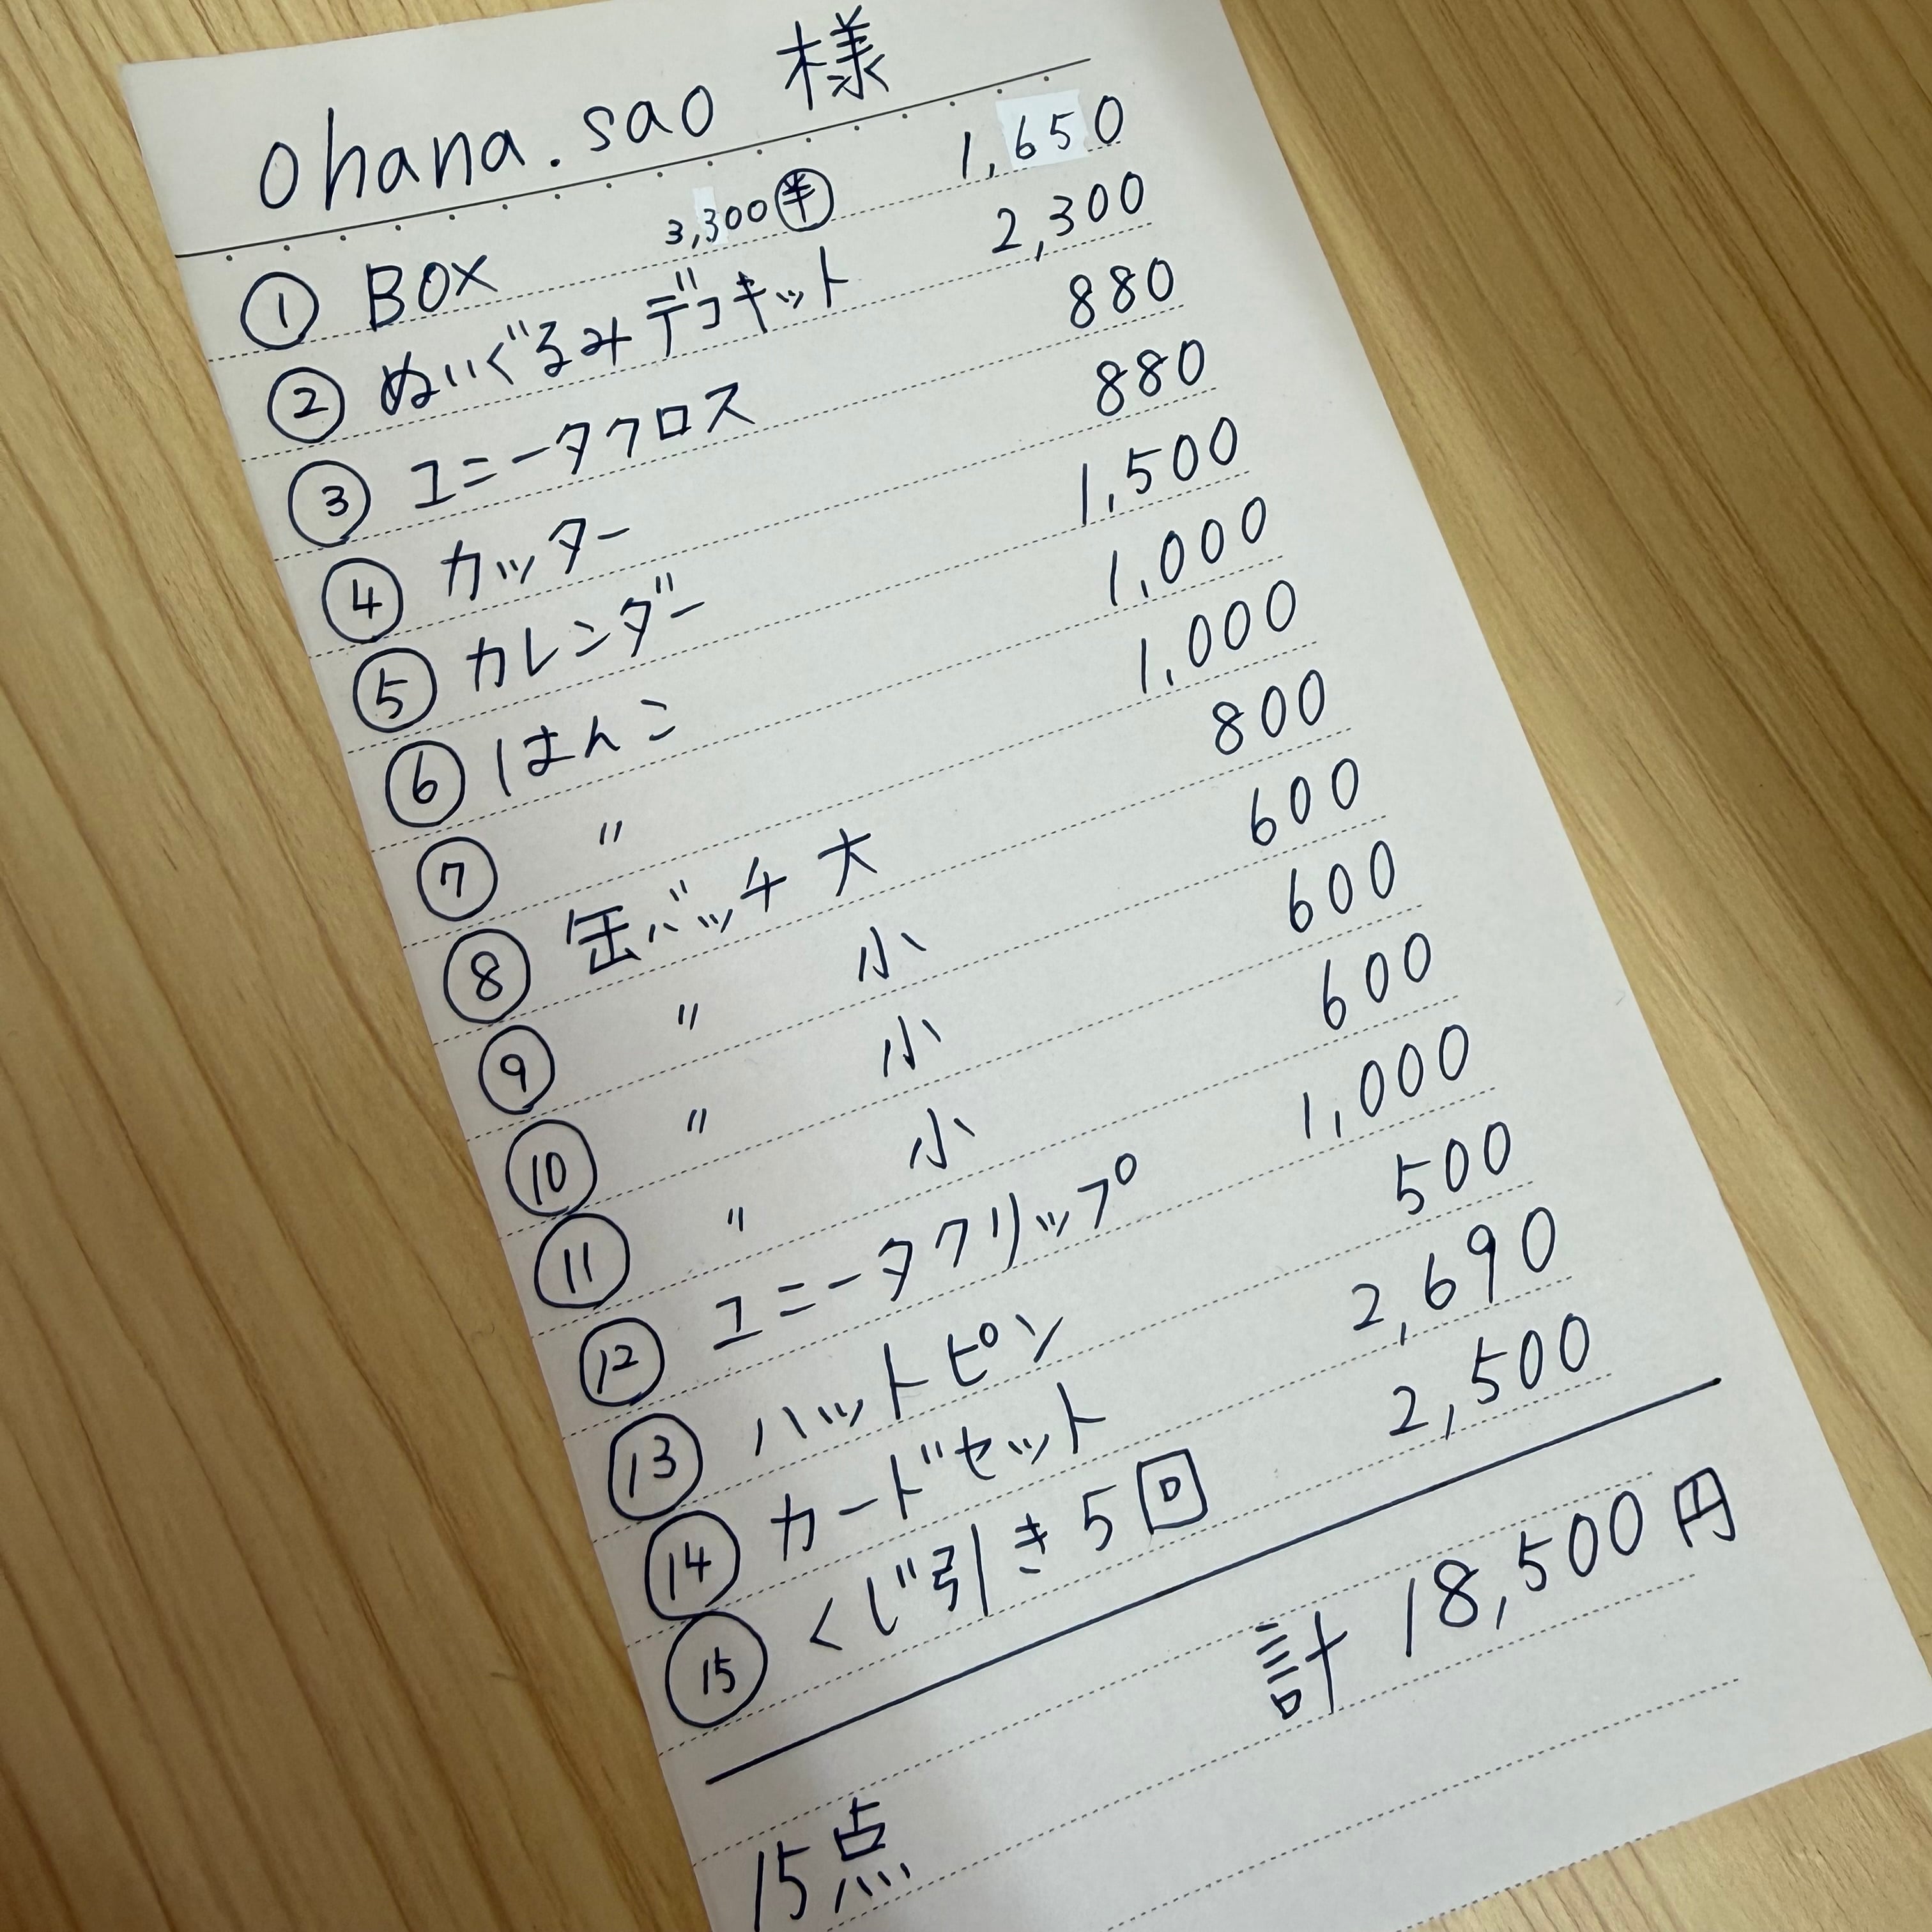 ohana.sao 様
① BOX 3,300㊥ 1,650
② ぬいぐるみデコキット 2,300
③ ユニータクロス 880
④ カッター 880
⑤ カレンダー 1,500
⑥ はんこ 1,000
⑦ 〃 1,000
⑧ 缶バッチ 大 800
⑨ 〃 小 600
⑩ 〃 小 600
⑪ 〃 小 600
⑫ ユニータクリップ 1,000
⑬ ハットピン 500
⑭ カードセット 2,690
⑮ くじ引き5回 2,500
計 18,500円
15点